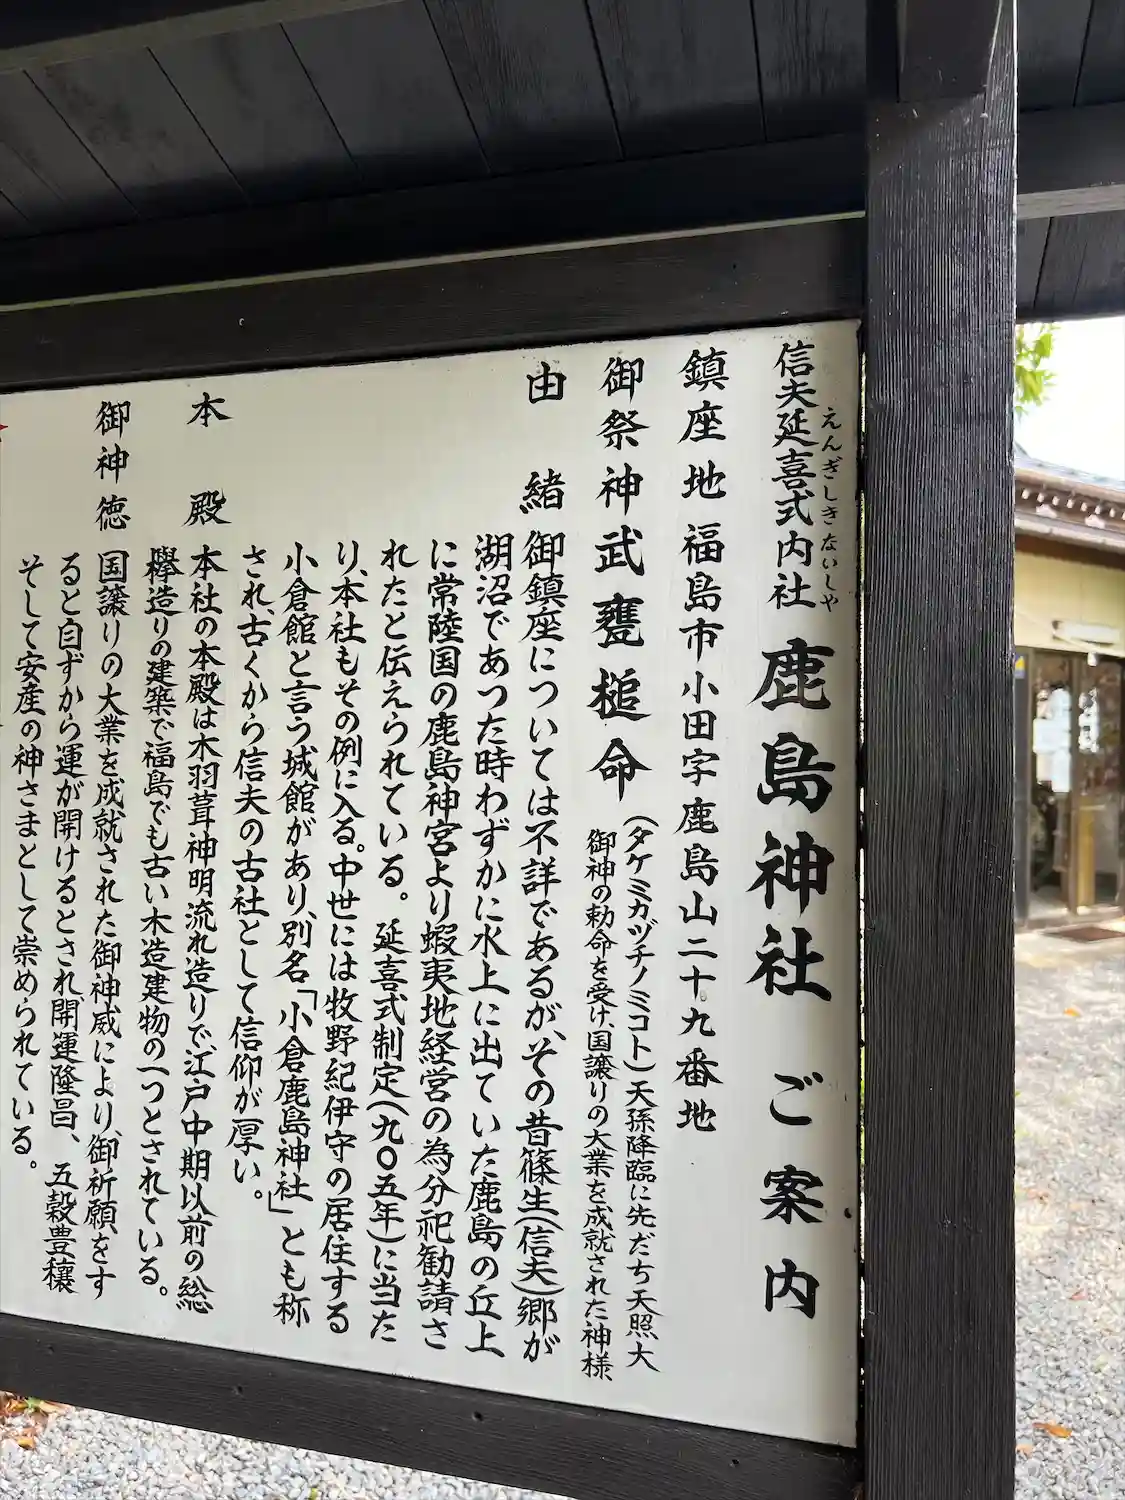 信夫延喜式内社 鹿島神社 ご案内
えんぎしきないしや
鎮座地 福島市小田字鹿島山二十九番地
御祭神 武甕槌命 (タケミカヅチノミコト)天孫降臨に先だち天照大
御神の勅命を受け、国譲りの大業を成就された神様
由緒 御鎮座については不詳であるが、その昔篠生(信夫)郷が
湖沼であつた時わずかに水上に出ていた鹿島の丘上
に常陸国の鹿島神宮より蝦夷地経営の為分祀勧請さ
れたと伝えられている。延喜式制定(九〇五年)に当た
り、本社もその例に入る。中世には牧野紀伊守の居住する
小倉館と言う城館があり、別名「小倉鹿島神社」とも称
され、古くから信夫の古社として信仰が厚い。
本殿 本社の本殿は木羽葺神明流れ造りで、江戸中期以前の総
欅造りの建築で福島でも古い木造建物の一つとされている。
御神徳 国譲りの大業を成就された御神威により、御祈願をす
ると自ずから運が開けるとされ、開運隆昌、五穀豊穣
そして安産の神さまとして崇められている。